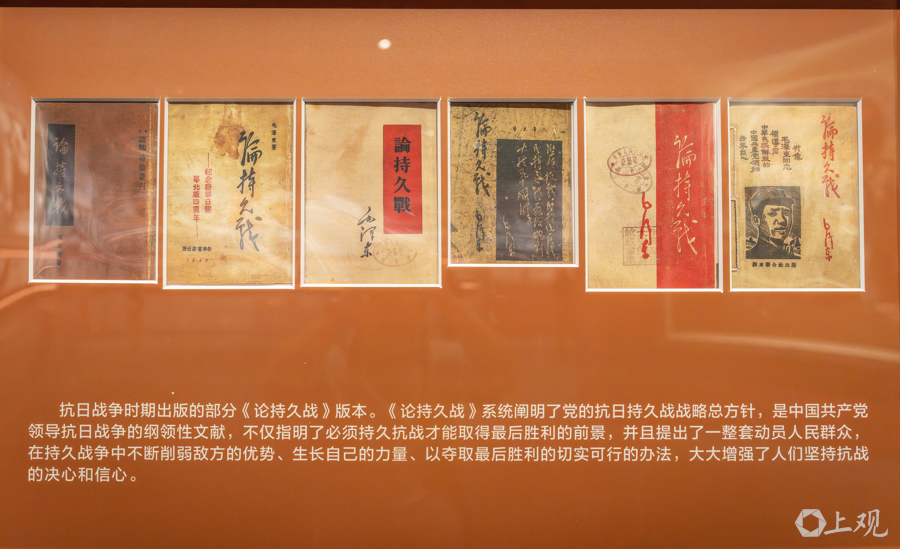 論持久戰
毛澤東著
論持久戰
華北版四週年
論持久戰
毛澤東
論持久戰
論持久戰
論持久戰
毛澤東
抗日战争时期出版的部分《论持久战》版本。《论持久战》系统阐明了党的抗日持久战战略总方针，是中国共产党
领导抗日战争的纲领性文献，不仅指明了必须持久抗战才能取得最后胜利的前景，并且提出了一整套动员人民群众，
在持久战争中不断削弱敌方的优势、生长自己的力量、以夺取最后胜利的切实可行的办法，大大增强了人们坚持抗战
的决心和信心。
上观